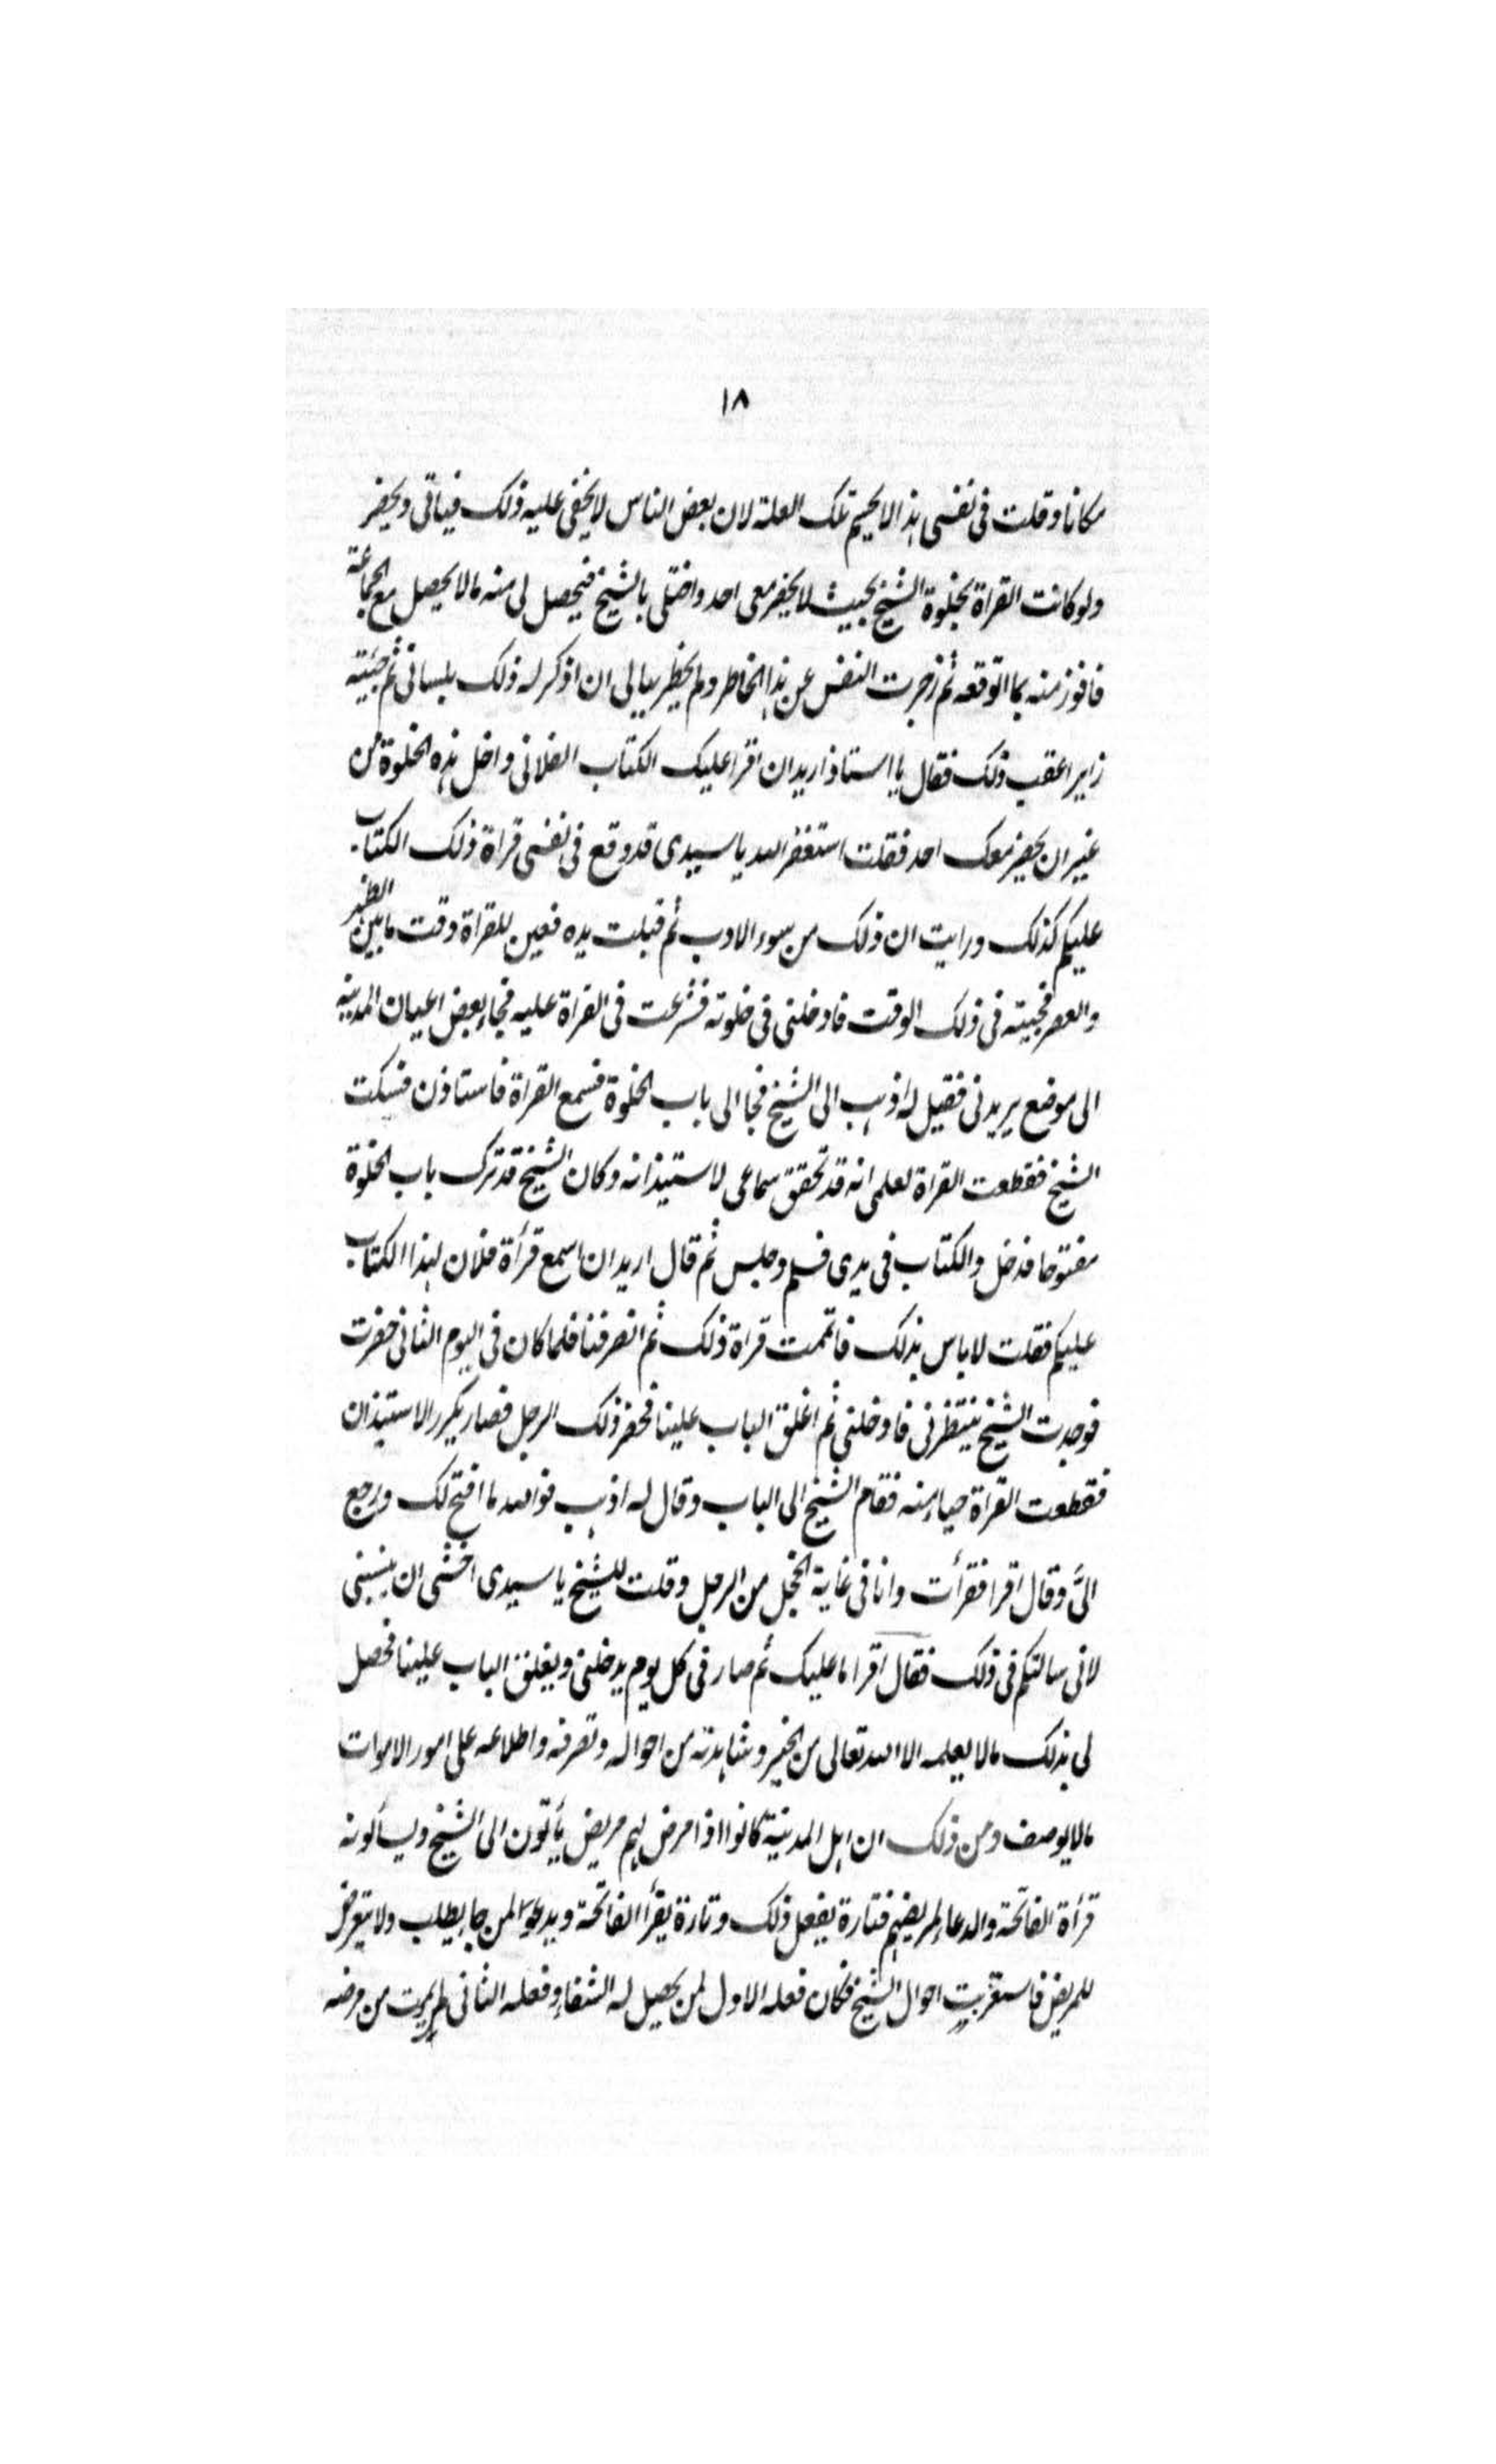 ١٨
مكانا وقلت فى نفسى هذا لا يحسم تلك العلة لان بعض الناس لا يخفى عليه ذلك فياتى ويحضر
ولو كانت القراة بخلوة الشيخ بحيث لا يحضر معى احد واختلى بالشيخ فيحصل لى منه مالا يحصل مع الجماعة
فافوز منه بما اتوقعه ثم زجرت النفس عن هذا الخاطر ولم يخطر ببالى ان اذكر له ذلك بلسانى ثم جئيته
زايرا عقب ذلك فقال يا استاذ اريد ان اقرا عليك الكتاب الفلانى واخل هذه الخلوة من
غير ان يحضر معك احد فقلت استغفر الله يا سيدى قد وقع فى نفسى قراة ذلك الكتاب
عليكم كذلك ورايت ان ذلك من سوء الادب ثم قبلت يده فعين للقراة وقت ما بين الظهر
والعصر فجيته فى ذلك الوقت فادخلنى فى خلوته فشرعت فى القراة عليه فجاء بعض اعيان المدينه
الى موضع يريدنى فقيل له اذهب الى الشيخ فجا الى باب الخلوة فسمع القراة فاستاذن فسكت
الشيخ فقطعت القراة لعلمى انه قد تحقق سماعى لاستيذانه وكان الشيخ قد ترك باب الخلوة
مفتوحا فدخل والكتاب فى يدى فسلم وجلس ثم قال اريد ان اسمع قرأة فلان لهذا الكتاب
عليكم فقلت لا باس بذلك فاتممت قراة ذلك ثم انصرفنا فلما كان فى اليوم الثانى حضرت
فوجدت الشيخ ينتظرنى فادخلنى ثم اغلق الباب علينا فحضر ذلك الرجل فصار يكرر الاستيذان
فقطعت القراة حياء منه فقام الشيخ الى الباب وقال له اذهب فوالله ما افتح لك ورجع
الىَّ وقال اقرا فقرأت وانا فى غاية الخجل من الرجل وقلت للشيخ يا سيدى اخشى ان ينسبنى
لانى سالتكم فى ذلك فقال اقرا ما عليك ثم صار فى كل يوم يدخلنى ويغلق الباب علينا فحصل
لى بذلك مالا يعلمه الا الله تعالى من الخير وشاهدته من احواله وتصرفه واطلاعه على امور الاموات
مالا يوصف ومن ذلك ان اهل المدينة كانوا اذا مرض لهم مريض يأتون الى الشيخ ويسألونه
قرأة الفاتحة والدعاء لمريضهم فتارة يفعل ذلك وتارة يقرأ الفاتحة ويدعو لمن جاء يطلب ولا يتعرض
للمريض فاستقريت احوال الشيخ فكان فعله الاول لمن يحصل له الشفاء وفعله الثانى لمن يموت من مرضه